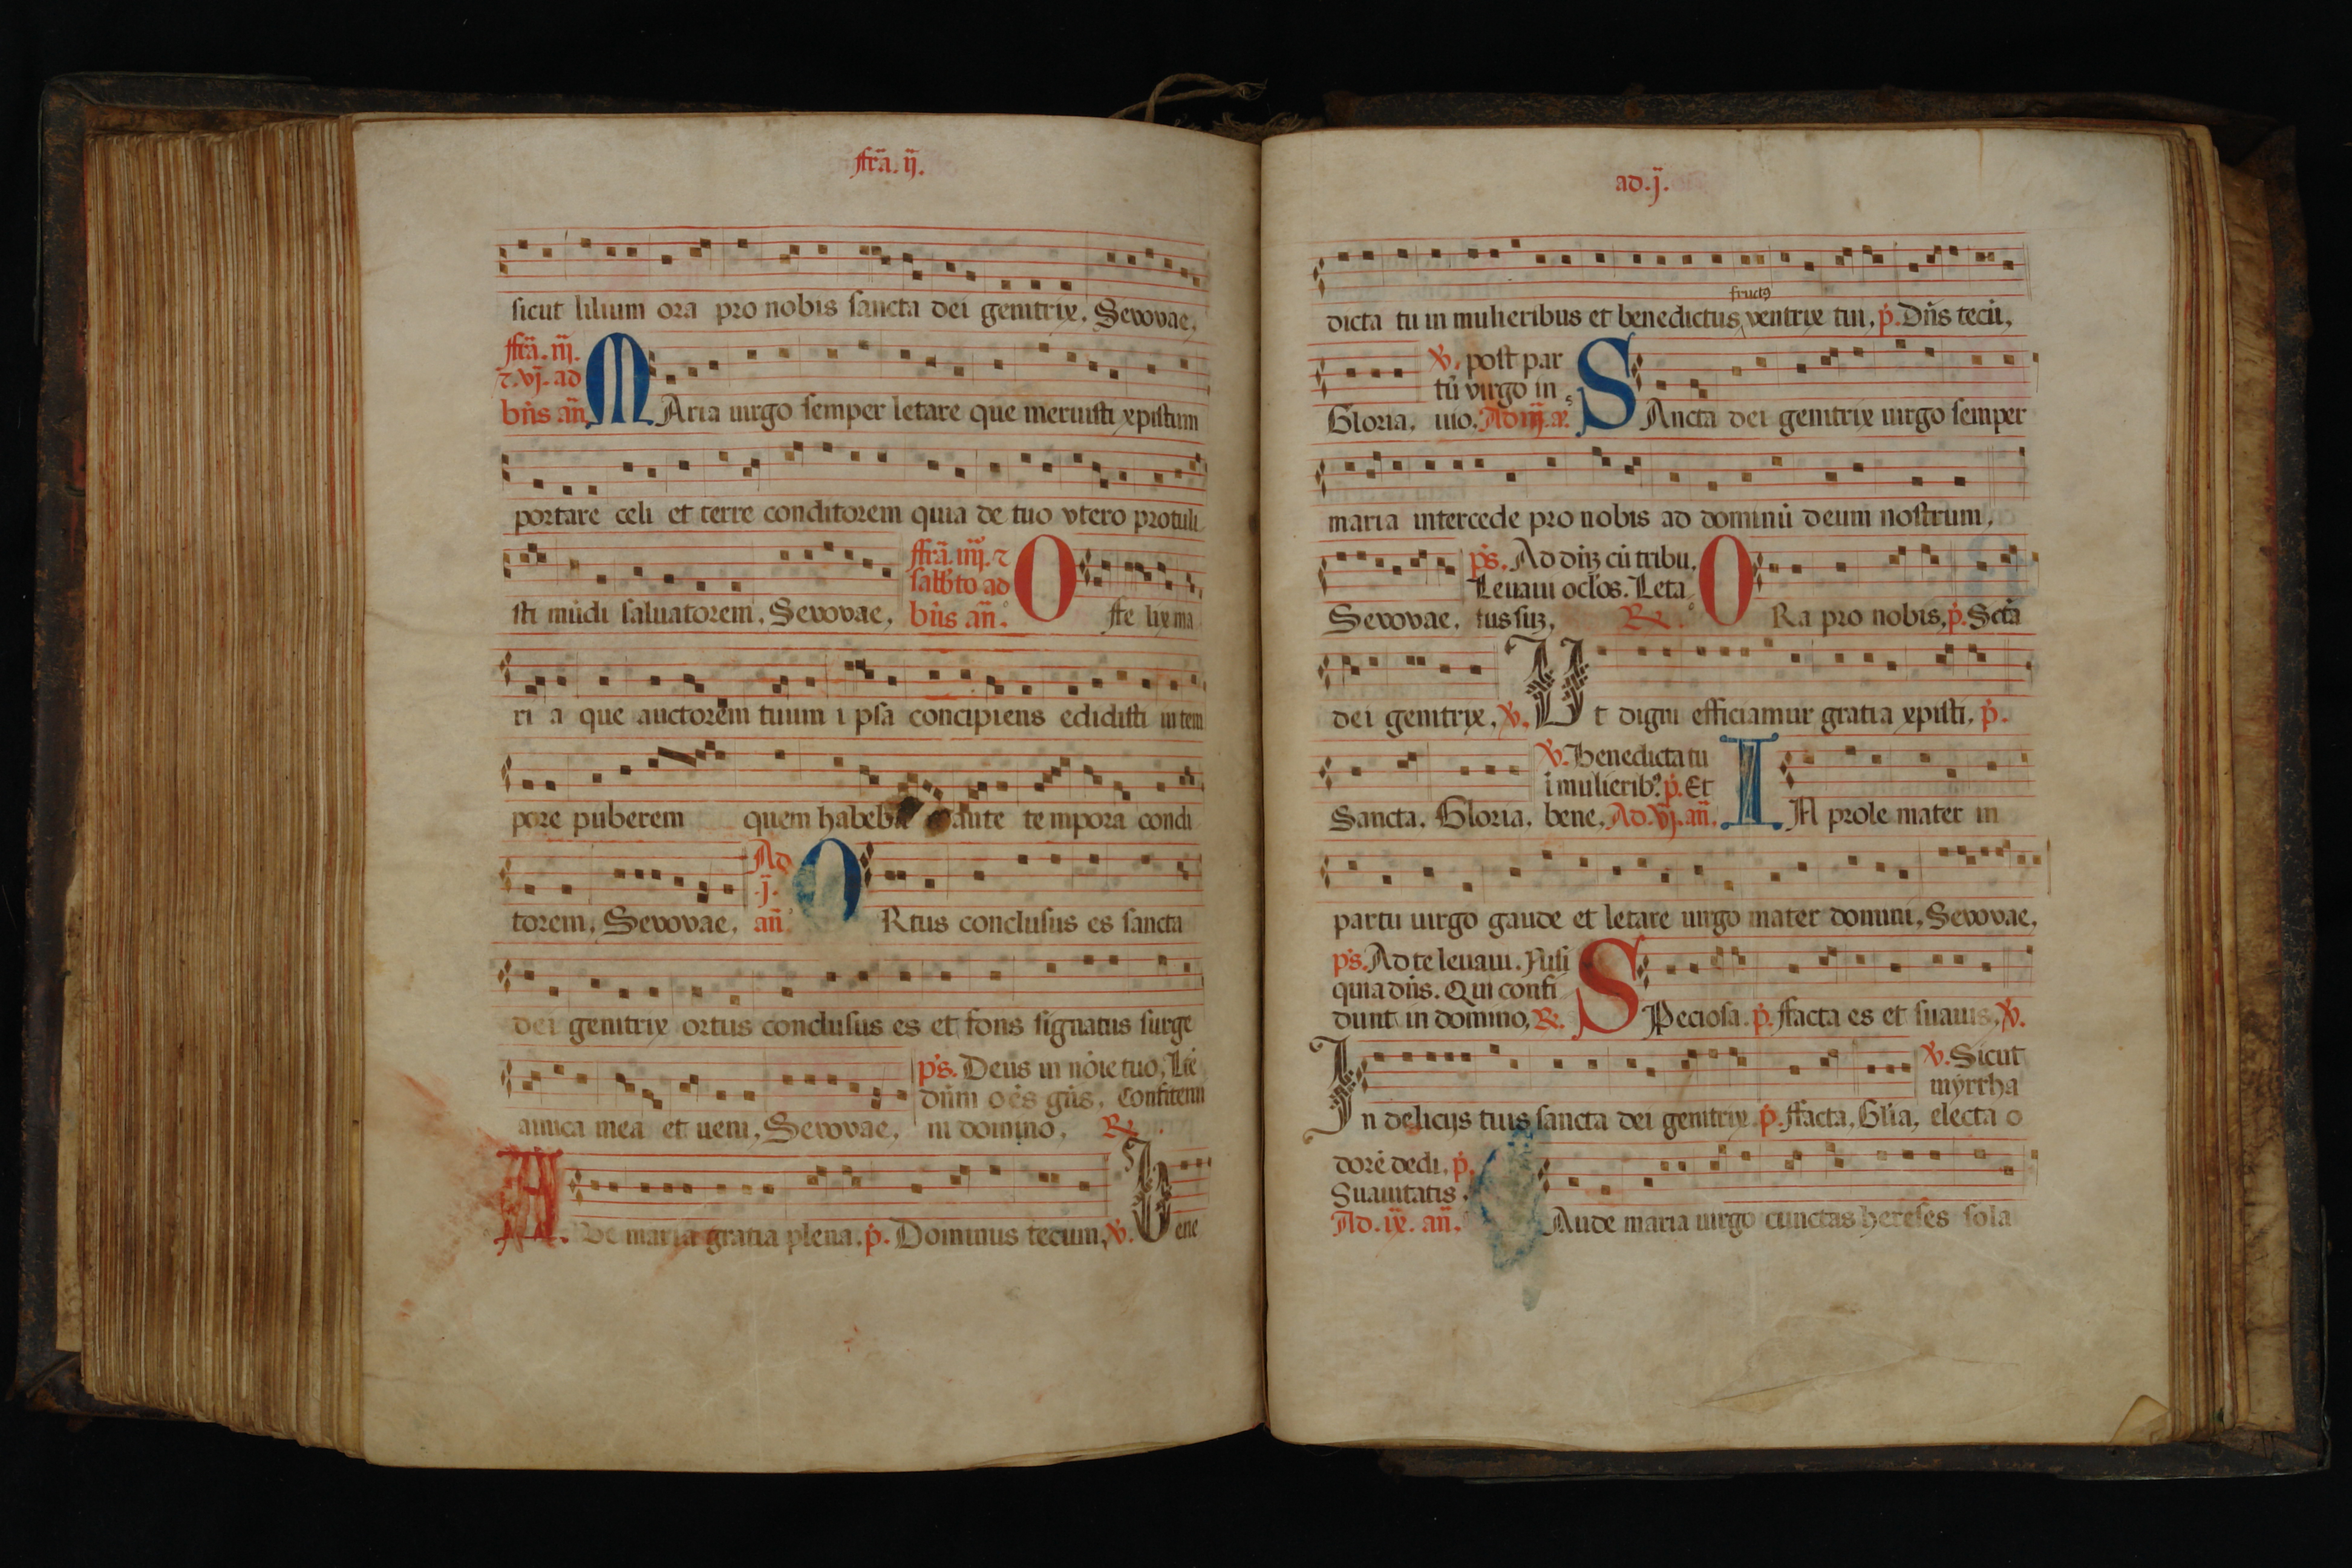 ffr̃a. ij.
sicut lilium ora pro nobis sancta dei genitrix. Seuouae,
ffr̃a. iij.
⁊. vj. ad
bñs añ
MAria uirgo semper letare que meruisti xpistum
portare celi et terre conditorem quia de tuo vtero protuli
sti mũdi saluatorem. Seuouae,
ffr̃a. iiij. ⁊
sabb̃to ad
bñs añ.
O ste lix ma
ri a que auctorem tuum i psa concipiens edidisti in tem
pore puberem quem habeba ante te mpora condi
torem, Seuouae,
Ad
.j.
añ
ORtus conclusus es sancta
dei genitrix ortus conclusus es et fons signatus surge
amica mea et ueni, Seuouae,
ps. Deus in nõie tuo, Lãe
dũm oẽs gẽs. Confitemi
ni domino, R̃.
A. ve maria gratia plena. p̃. Dominus tecum, ṽ. Bene
ad. j̃.
dicta tu in mulieribus et benedictus ventrix tui, p̃. Dñs tecũ,
fructꝰ
Gloria,
ṽ. post par
tũ virgo in
uio. Ad iij. añ.
SAncta dei genitrix uirgo semper
maria intercede pro nobis ad dominũ deum nostrum,
Seuouae,
ps. Ad dñz cũ tribu.
Leuaui oclõs. Leta
tus suz, R̃.
ORa pro nobis, p̃. Sctã
dei genitrix, ṽ. Ut digni efficiamur gratia xpisti, p̃.
Sancta. Gloria.
ṽ. Benedicta tu
ĩ mulieribꝰ. p̃. Et
bene, Ad. vj. añ.
IN prole mater in
partu uirgo gaude et letare uirgo mater domini, Seuouae,
ps. Ad te leuaui. Nisi
quia dñs. Qui confi
dunt in domino, R̃.
SPeciosa. p̃. ffacta es et suauis, ṽ.
In delicijs tuis sancta dei genitrix. p̃. ffacta, Glĩa,
ṽ. Sicut
myrrha
electa o
dorẽ dedi, p̃.
Suauitatis.
Ad. ix. añ.
Aude maria uirgo cunctas hereses sola